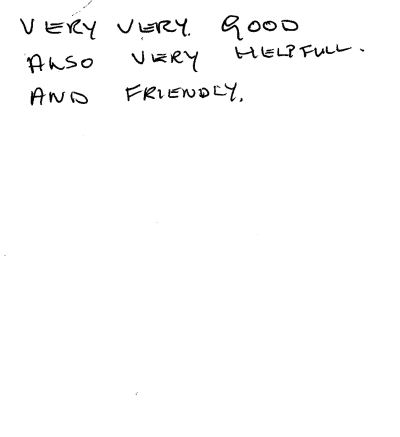 VERY VERY. GOOD
ALSO VERY HELPFULL.
AND FRIENDLY.